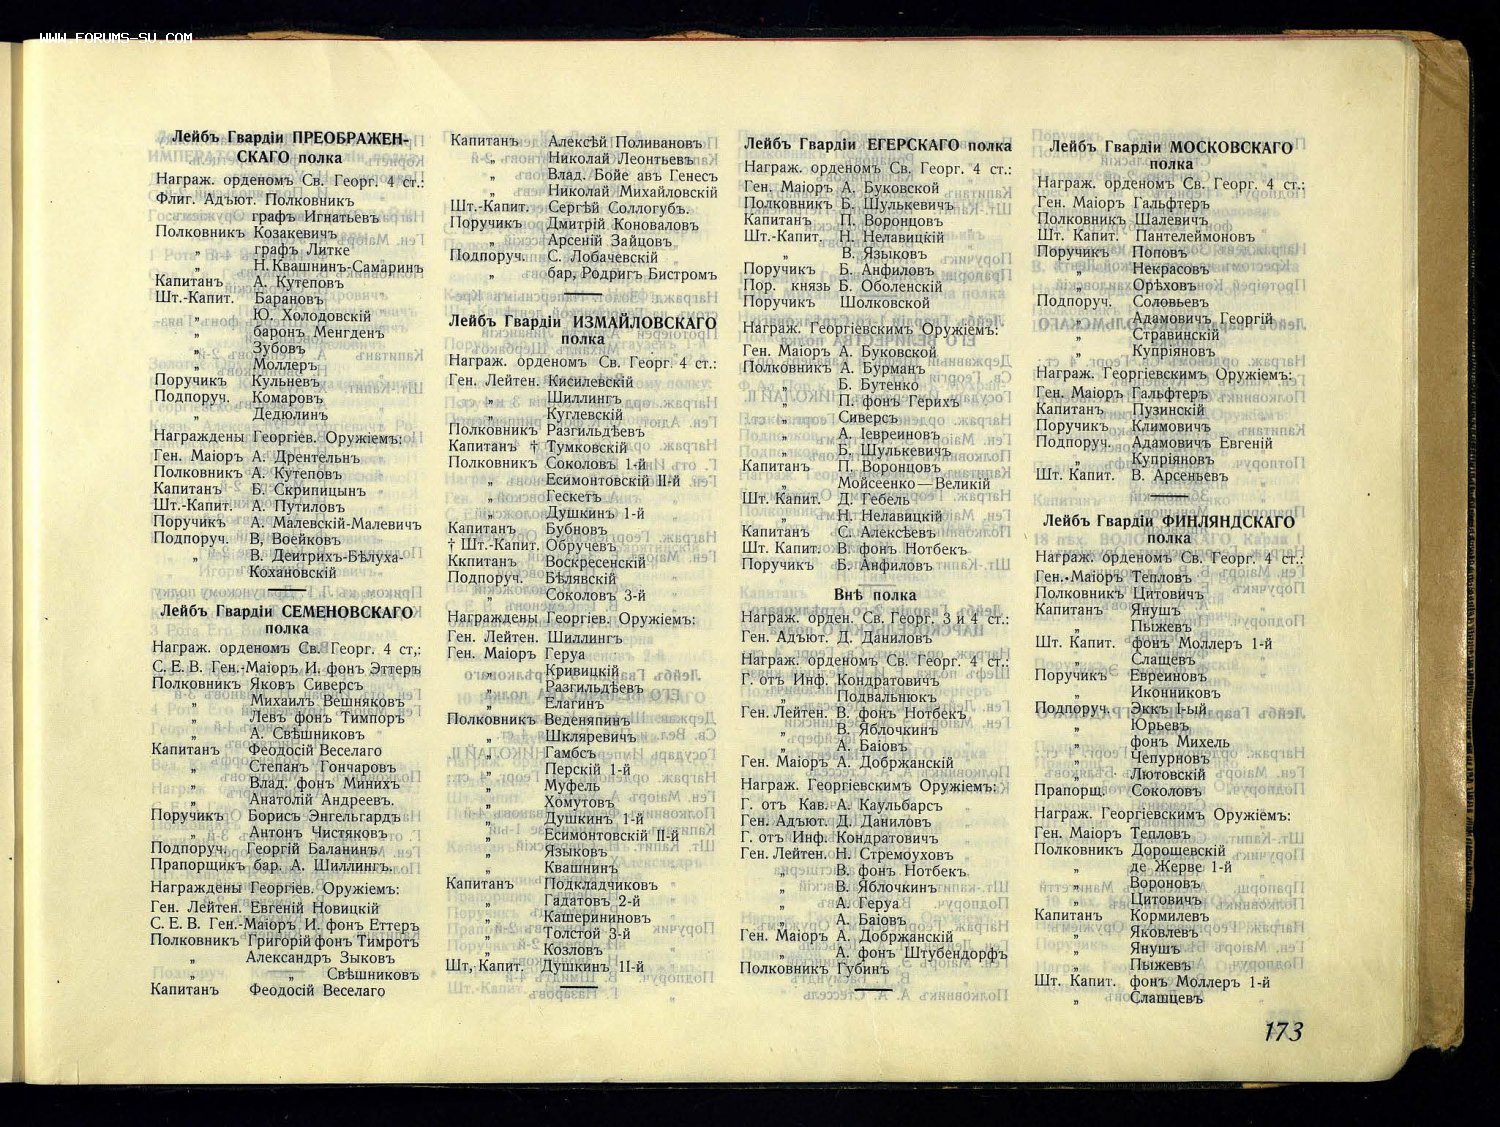 WWW.FORUMS-SU.COM
Лейбъ Гвардіи ПРЕОБРАЖЕН-
СКАГО полка
Награж. орденомъ Св. Георг. 4 ст.:
Флиг. Адъют. Полковникъ
графъ Игнатьевъ
Полковникъ Козакевичъ
„ графъ Литке
„ Н. Квашнинъ-Самаринъ
Капитанъ А. Кутеповъ
Шт.-Капит. Барановъ
„ Ю. Холодовскій
„ баронъ Менгденъ
„ Зубовъ
„ Моллеръ
Поручикъ Кульневъ
Подпоруч. Комаровъ
„ Дедюлинъ
Награждены Георгіев. Оружіемъ:
Ген. Маіоръ А. Дрентельнъ
Полковникъ А. Кутеповъ
Капитанъ Б. Скрипицынъ
Шт.-Капит. А. Путиловъ
Поручикъ А. Малевскій-Малевичъ
Подпоруч. В, Воейковъ
„ В. Дейтрихъ-Бѣлуха-
Кохановскій
Лейбъ Гвардіи СЕМЕНОВСКАГО
полка
Награж. орденомъ Св. Георг. 4 ст,:
С. Е. В. Ген.-Маіоръ И. фонъ Эттеръ
Полковникъ Яковъ Сиверсъ
„ Михаилъ Вешняковъ
„ Левъ фонъ Тимпоръ
„ А. Свѣшниковъ
Капитанъ Феодосій Веселаго
„ Степанъ Гончаровъ
„ Влад. фонъ Минихъ
„ Анатолій Андреевъ.
Поручикъ Борисъ Энгельгардъ
„ Антонъ Чистяковъ
Подпоруч. Георгій Баланинъ
Прапорщикъ бар. А. Шиллингъ.
Награждены Георгіев. Оружіемъ:
Ген. Лейтен. Евгеній Новицкій
С. Е. В. Ген.-Маіоръ И. фонъ Еттеръ
Полковникъ Григорій фонъ Тимротъ
„ Александръ Зыковъ
„ „ Свѣшниковъ
Капитанъ Феодосій Веселаго
Капитанъ Алексѣй Поливановъ
„ Николай Леонтьевъ
„ Влад. Бойе авъ Генесъ
„ Николай Михайловскій
Шт.-Капит. Сергѣй Соллогубъ.
Поручикъ Дмитрій Коноваловъ
„ Арсеній Зайцовъ
Подпоруч. С. Лобачевскій
„ бар, Родригъ Бистромъ
Лейбъ Гвардіи ИЗМАЙЛОВСКАГО
полка
Награж. орденомъ Св. Георг. 4 ст.:
Ген. Лейтен. Кисилевскій
„ Шиллингъ
„ Куглевскій
Полковникъ Разгильдѣевъ
Капитанъ † Тумковскій
Полковникъ Соколовъ 1-й
„ Есимонтовскій II-й
„ Гескетъ
„ Душкинъ 1-й
Капитанъ Бубновъ
† Шт.-Капит. Обручевъ
Ккпитанъ Воскресенскій
Подпоруч. Бѣлявскій
„ Соколовъ 3-й
Награждены Георгіев. Оружіемъ:
Ген. Лейтен. Шиллингъ
Ген. Маіоръ Геруа
„ Кривицкій
„ Разгильдѣевъ
„ Елагинъ
Полковникъ Веденяпинъ
„ Шкляревичъ
„ Гамбсъ
„ Перскій 1-й
„ Муфель
„ Хомутовъ
„ Душкинъ 1-й
„ Есимонтовскій II-й
„ Языковъ
„ Квашнинъ
Капитанъ Подкладчиковъ
„ Гадатовъ 2-й
„ Кашерининовъ
„ Толстой 3-й
„ Козловъ
Шт, Капит. Душкинъ II-й
Лейбъ Гвардіи ЕГЕРСКАГО полка
Награж. орденомъ Св. Георг. 4 ст.:
Ген. Маіоръ А. Буковской
Полковникъ Б. Шулькевичъ
Капитанъ П. Воронцовъ
Шт.-Капит. Н. Нелавицкій
„ В. Языковъ
Поручикъ Б. Анфиловъ
Пор. князь Б. Оболенскій
Поручикъ Шолковской
Награж. Георгіевскимъ Оружіемъ:
Ген. Маіоръ А. Буковской
Полковникъ А. Бурманъ
„ Б. Бутенко
„ П. фонъ Герихъ
„ Сиверсъ
„ А. Іевреиновъ
„ Б. Шулькевичъ
Капитанъ П. Воронцовъ
„ Мойсеенко—Великій
Шт. Капит. Д. Гебель
„ Н. Нелавицкій
Капитанъ С. Алексѣевъ
Шт. Капит. В. фонъ Нотбекъ
Поручикъ Б. Анфиловъ
Внѣ полка
Награж. орден. Св. Георг. 3 и 4 ст.:
Ген. Адъют. Д. Даниловъ
Награж. орденомъ Св. Георг. 4 ст.:
Г. отъ Инф. Кондратовичъ
„ Подвальнюкъ
Ген. Лейтен. В. фонъ Нотбекъ
„ В. Яблочкинъ
„ А. Баіовъ
Ген. Маіоръ А. Добржанскій
Награж. Георгіевскимъ Оружіемъ:
Г. отъ Кав. А. Каульбарсъ
Ген. Адъют. Д. Даниловъ
Г. отъ Инф. Кондратовичъ
Ген. Лейтен. Н. Стремоуховъ
„ В. фонъ Нотбекъ
„ В. Яблочкинъ
„ А. Геруа
„ А. Баіовъ
Ген. Маіоръ А. Добржанскій
„ А. фонъ Штубендорфъ
Полковникъ Губинъ
Лейбъ Гвардіи МОСКОВСКАГО
полка
Награж. орденомъ Св. Георг. 4 ст.:
Ген. Маіоръ Гальфтеръ
Полковникъ Шалевичъ
Шт. Капит. Пантелеймоновъ
Поручикъ Поповъ
„ Некрасовъ
„ Орѣховъ
Подпоруч. Соловьевъ
„ Адамовичъ Георгій
„ Стравинскій
„ Купріяновъ
Награж. Георгіевскимъ Оружіемъ:
Ген. Маіоръ Гальфтеръ
Капитанъ Пузинскій
Поручикъ Климовичъ
Подпоруч. Адамовичъ Евгеній
„ Купріяновъ
Шт. Капит. В. Арсеньевъ
Лейбъ Гвардіи ФИНЛЯНДСКАГО
полка
Награж. орденомъ Св. Георг. 4 ст.:
Ген. Маіоръ Тепловъ
Полковникъ Цитовичъ
Капитанъ Янушъ
„ Пыжевъ
Шт. Капит. фонъ Моллеръ 1-й
„ Слащевъ
Поручикъ Евреиновъ
„ Иконниковъ
Подпоруч. Эккъ I-ый
„ Юрьевъ
„ фонъ Михель
„ Чепурновъ
„ Лютовскій
Прапорщ. Соколовъ
Награж. Георгіевскимъ Оружіемъ:
Ген. Маіоръ Тепловъ
Полковникъ Дорошевскій
„ де Жерве 1-й
„ Вороновъ
„ Цитовичъ
Капитанъ Кормилевъ
„ Яковлевъ
„ Янушъ
„ Пыжевъ
Шт. Капит. фонъ Моллеръ 1-й
„ Слащевъ
173